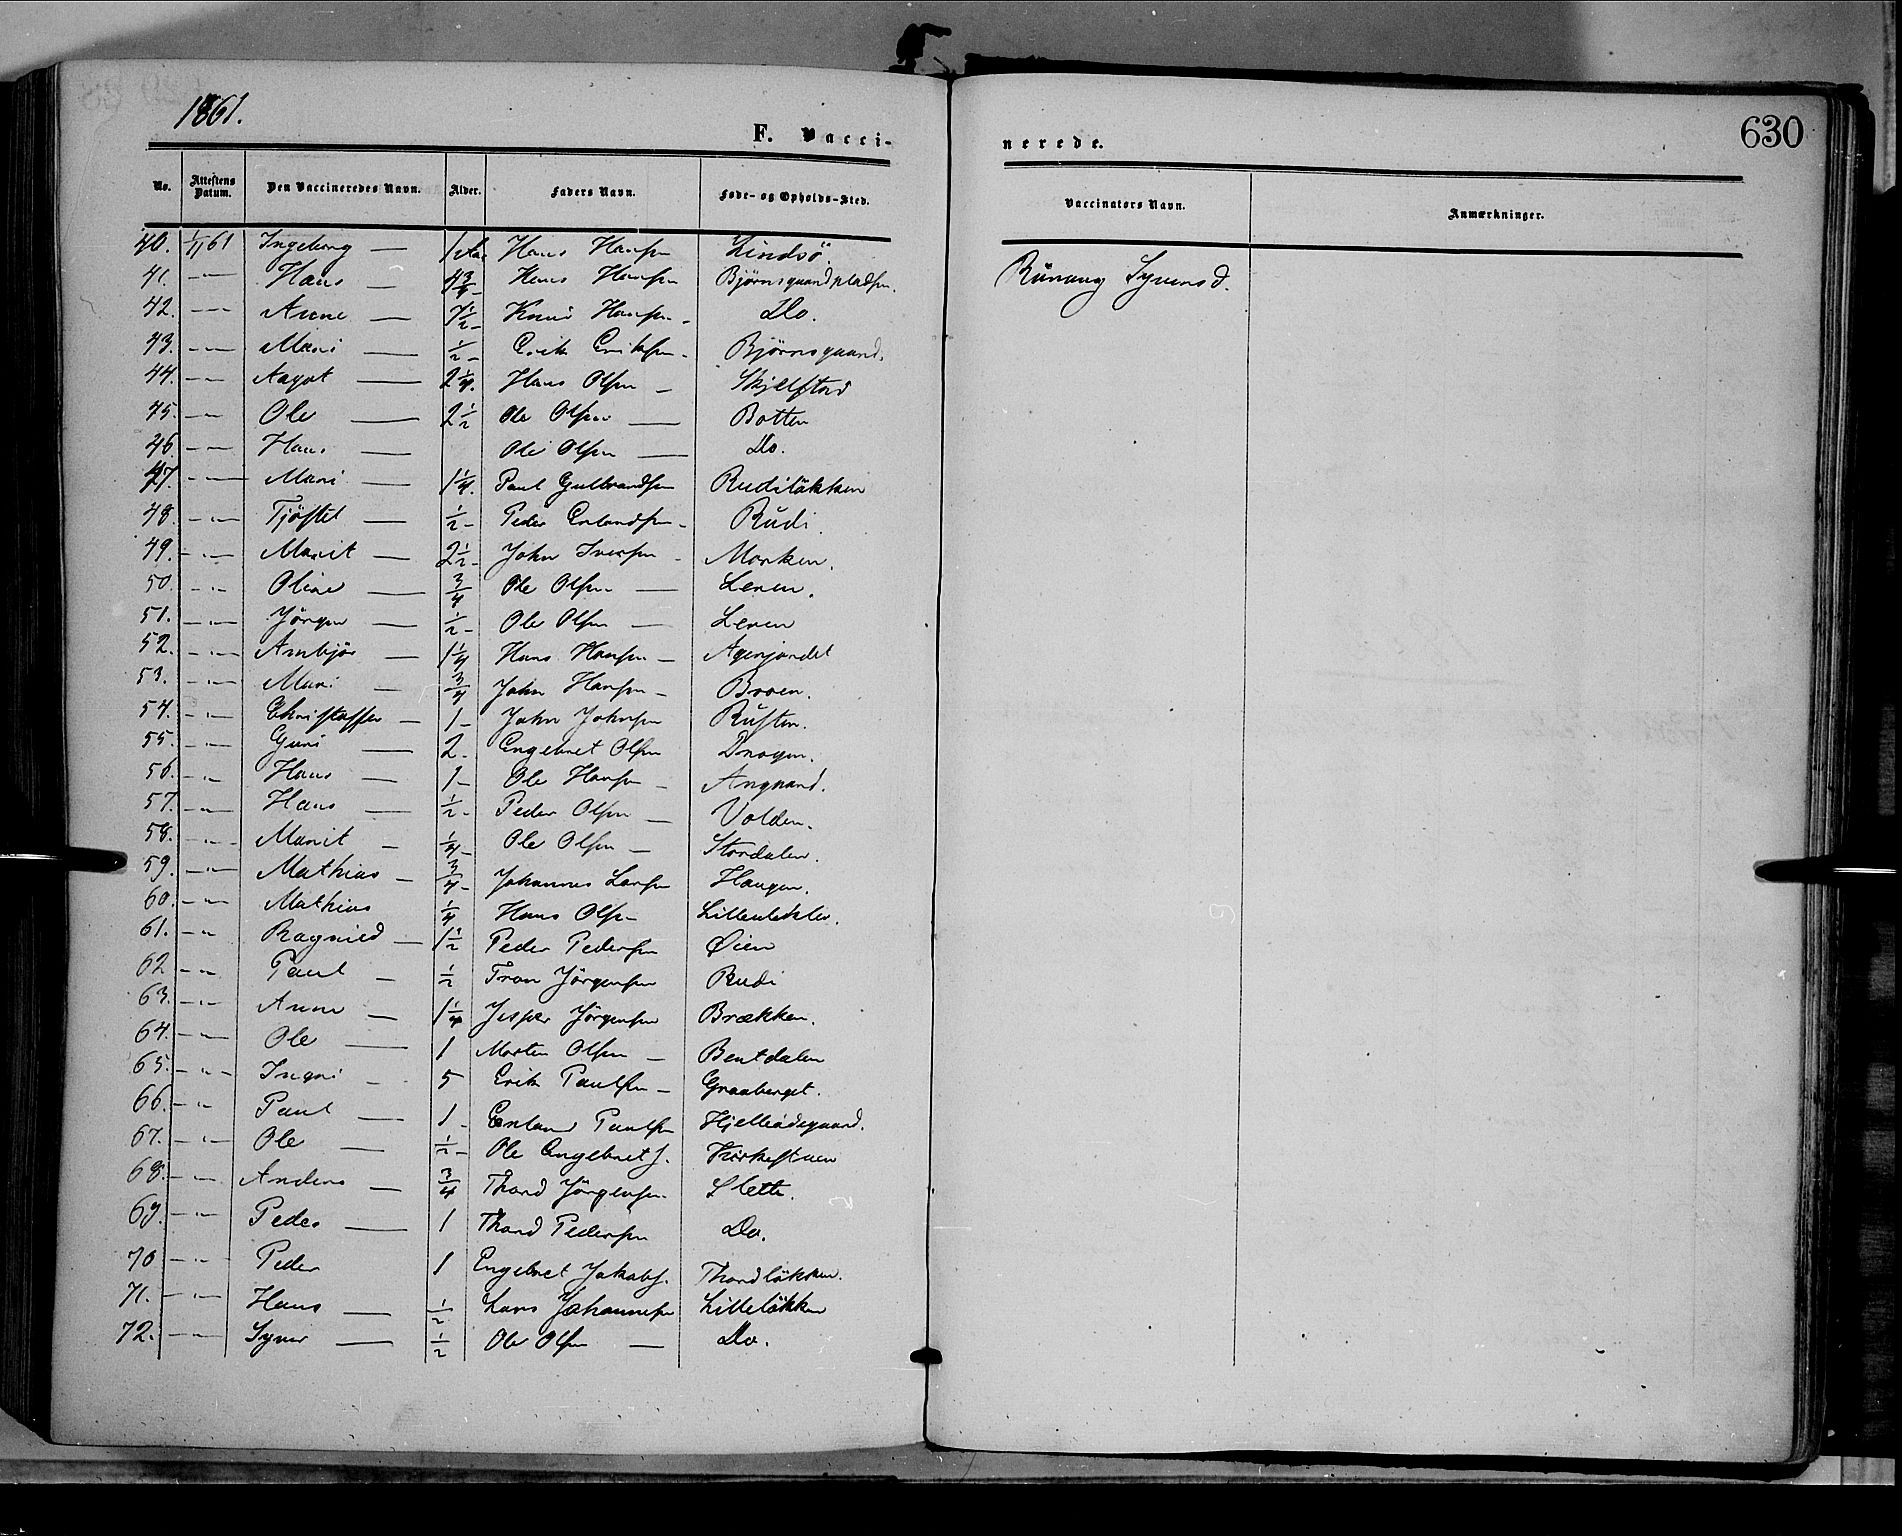 1861.
630
F. Vacci-
nerede.
No. Attestens Datum. Den Vaccineredes Navn. Alder. Faders Navn. Føde- og Opholds-Sted. Vaccinators Navn. Anmærkninger.
40. 1/11 61 Ingeborg — 1 Hans Hansen Lindsö.
41. — " — Hans — Hans Hansen Bjørnsgaardpladsen.
42. — " — Anne — Knud Hansen - Do.
43. — " — Mari — 1/2 - Erik Eriksen - Bjørnsgaard.
44. — " — Aagot — 2 1/4. Hans Olsen — Skjelstad
45. — " — Ole — 2 1/2 Ole Olsen — Botten
46. — " — Hans — Ole Olsen — Do.
47. — " — Mari — 1 1/4. Paul Gulbrandsen Rudiløkken
48. — " — Tjöstel — 1/2 - Peder Erlandsen - Rudi.
49. — " — Marit — 2 1/2 - John Iversen - Morken.
50. — " — Oline — 3/4 Ole Olsen — Leren.
51. — " — Jörgen — 1/2 - Ole Olsen — Leren
52. — " — Arnbjör — 1 1/4 Hans Hansen — Agerjordet
53. — " — Mari — 3/4 John Hansen - Broen.
54. — " — Christoffer — 1 - John Johnsen Rusten.
55. — " — Guri — 2 - Engebret Olsen Drogen.
56. — " — Hans — 1 - Ole Hansen - Angaard.
57. — " — Hans — 1/2 - Peder Olsen — Volden.
58. — " — Marit — 1/4 - Ole Olsen — Stordalen.
59. — " — Mathias — 3/4 - Johannes Larsen Haugen.
60. — " — Mathias 1/4 Hans Olsen
61. — " — Ragnild — 1 1/2 Peder Pedersen Øien
62 — " — Paul — 1/2 Tron Jörgensen Rudi
63. — " — Anne — 1 1/4 Jesper Jörgensen Brækken.
64. — " — Ole — 1 Morten Olsen — Bentdalen
65. — " — Ingri - 5 Erik Paulsen — Graaberget.
66. — " — Paul — 1 - Erland Paulsen
67. — " — Ole — 1/2 - Ole Engebrets. Kirkestuen
68. — " — Anders — 3/4 Thord Jörgensen. Slette.
69. — " — Peder — 1 Thord Pedersen Do.
70 — " — Peder 1 Engebret Jakobs. Thordløkken.
71. — " — Hans — 1/2 Lars Johannesen Lilleløkken
72. — " — Syver — 1/2 Ole Olsen — Do.